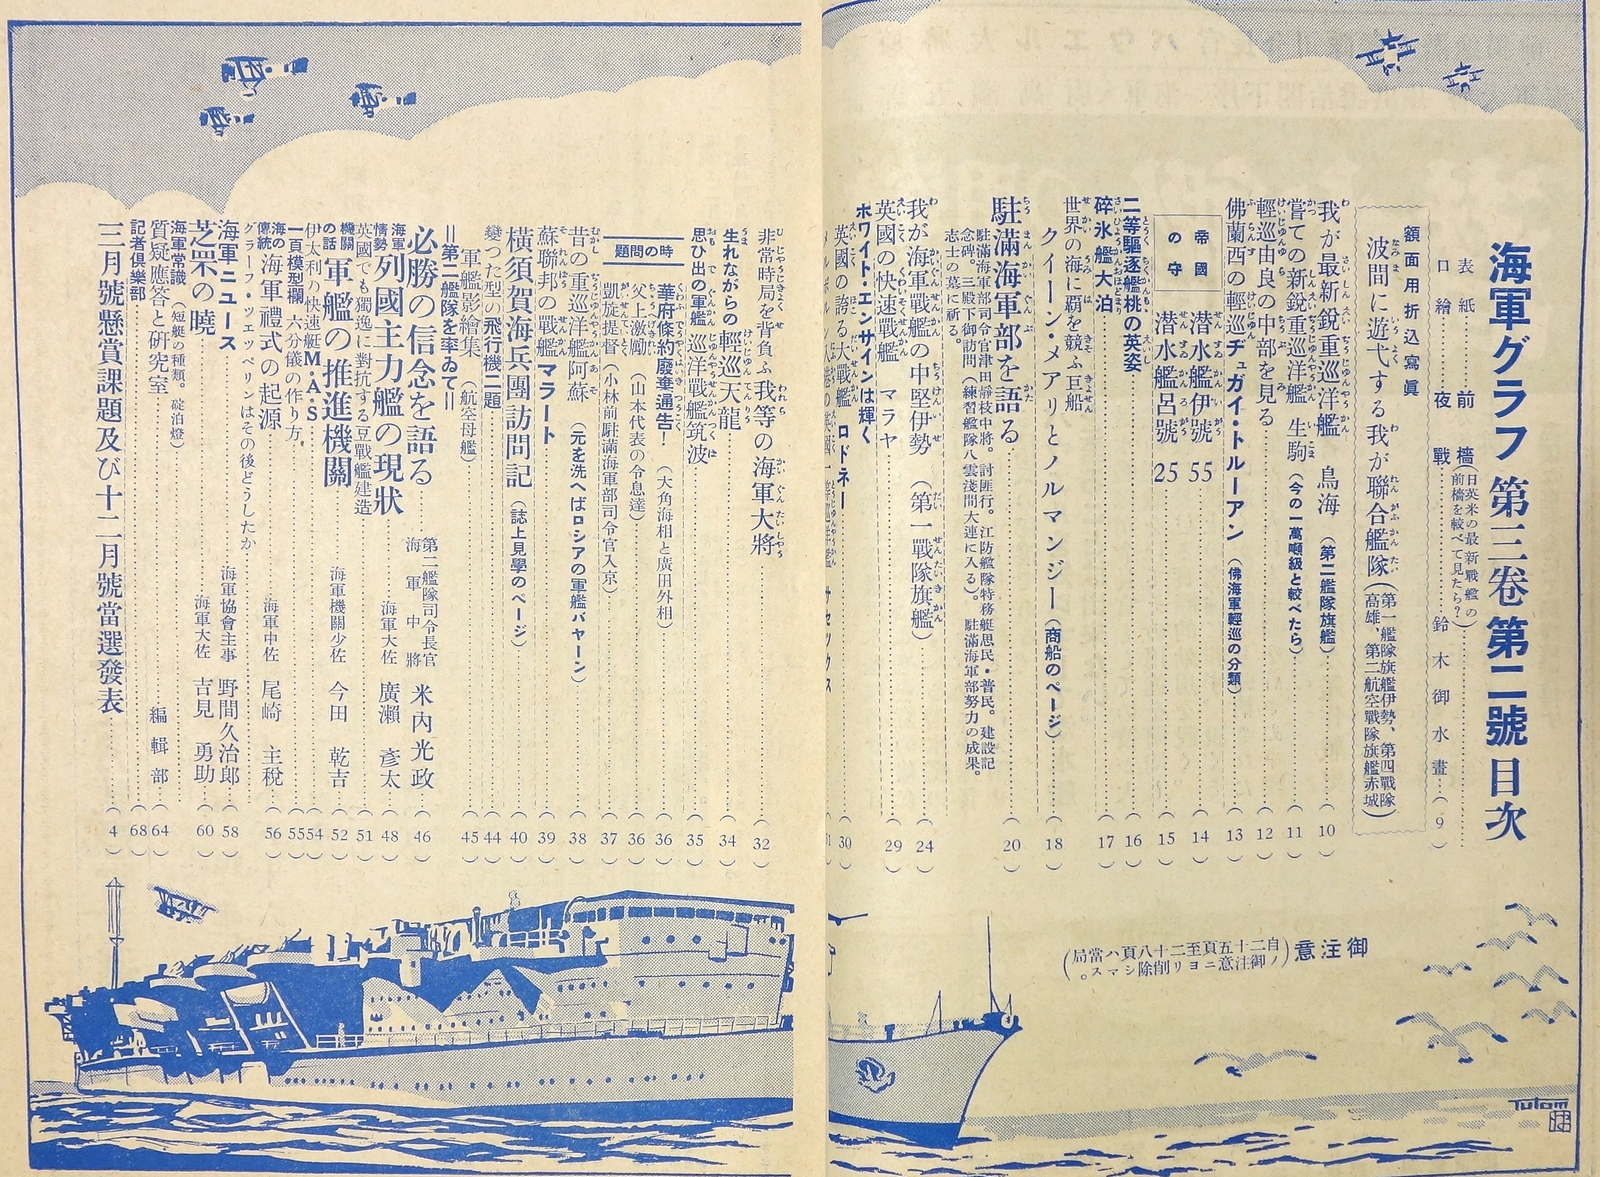 海軍グラフ 第三卷 第二號 目次
表紙 前檣(日英米の最新戰艦の前檣を較べて見たら?)
口繪 夜戰 鈴木御水畫 (9)
額面用折込寫眞
波間に遊弋する我が聯合艦隊(第一艦隊旗艦伊勢、第四戰隊高雄、第二航空戰隊旗艦赤城)
我が最新鋭重巡洋艦 鳥海 (第二艦隊旗艦) (10)
嘗ての新鋭重巡洋艦 生駒 (今の一萬噸級と較べたら) (11)
輕巡由良の中部を見る (12)
佛蘭西の輕巡ヂュガイ・トルーアン (佛海軍輕巡の分類) (13)
帝國の守
潜水艦伊號 55 (14)
潜水艦呂號 25 (15)
二等驅逐艦桃の英姿 (16)
碎氷艦大泊 (17)
世界の海に覇を競ふ巨船
クイーン・メアリとノルマンジー (商船のページ) (18)
駐滿海軍部を語る (20)
駐滿海軍部司令官津田靜枝中將。討匪行。江防艦隊特務艇恩民・普民。建設記
念碑。三殿下御訪問(練習艦隊八雲淺間大連に入る)。駐滿海軍部努力の成果。
志士の墓に祈る。
我が海軍戰艦の中堅伊勢 (第一戰隊旗艦) (24)
英國の快速戰艦 マラヤ (29)
ホワイト・エンサインは輝く
英國の誇る大戰艦 ロドネー (30)
御注意(自二十五頁至二十八頁ハ當局ノ御注意ニヨリ削除シマス。)
Tutom
非常時局を背負ふ我等の海軍大將 (32)
生れながらの輕巡天龍 (34)
思ひ出の軍艦 巡洋戰艦筑波 (35)
時の問題
華府條約廢棄通告! (大角海相と廣田外相) (36)
父上激勵 (山本代表の令息達) (36)
凱旋提督 (小林前駐滿海軍部司令官入京) (37)
昔の重巡洋艦阿蘇 (元を洗へばロシアの軍艦バヤーン) (38)
蘇聯邦の戰艦マラート (39)
橫須賀海兵團訪問記 (誌上見學のページ) (40)
變つた型の飛行機二題 (44)
軍艦影繪集 (航空母艦) (45)
=第二艦隊を率ゐて=
必勝の信念を語る 第二艦隊司令長官 海軍中將 米內光政 (46)
海軍情勢 列國主力艦の現狀 海軍大佐 廣瀨彥太 (48)
英國でも獨逸に對抗する豆戰艦建造 (51)
機關の話 軍艦の推進機關 海軍機關少佐 今田乾吉 (52)
伊太利の快速艇M.A.S (54)
一頁模型欄 六分儀の作り方 (55)
海の傳統 海軍禮式の起源 海軍中佐 尾崎主稅 (56)
グラーフ・ツエッペリンはその後どうしたか
海軍ニュース 海軍協會主事 野間久治郎 (58)
芝罘の曉 海軍大佐 吉見勇助 (60)
海軍常識 (短艇の種類。碇泊燈)
質疑應答と研究室 編輯部 (64)
記者俱樂部 (68)
三月號懸賞課題及び十二月號當選發表 (4)